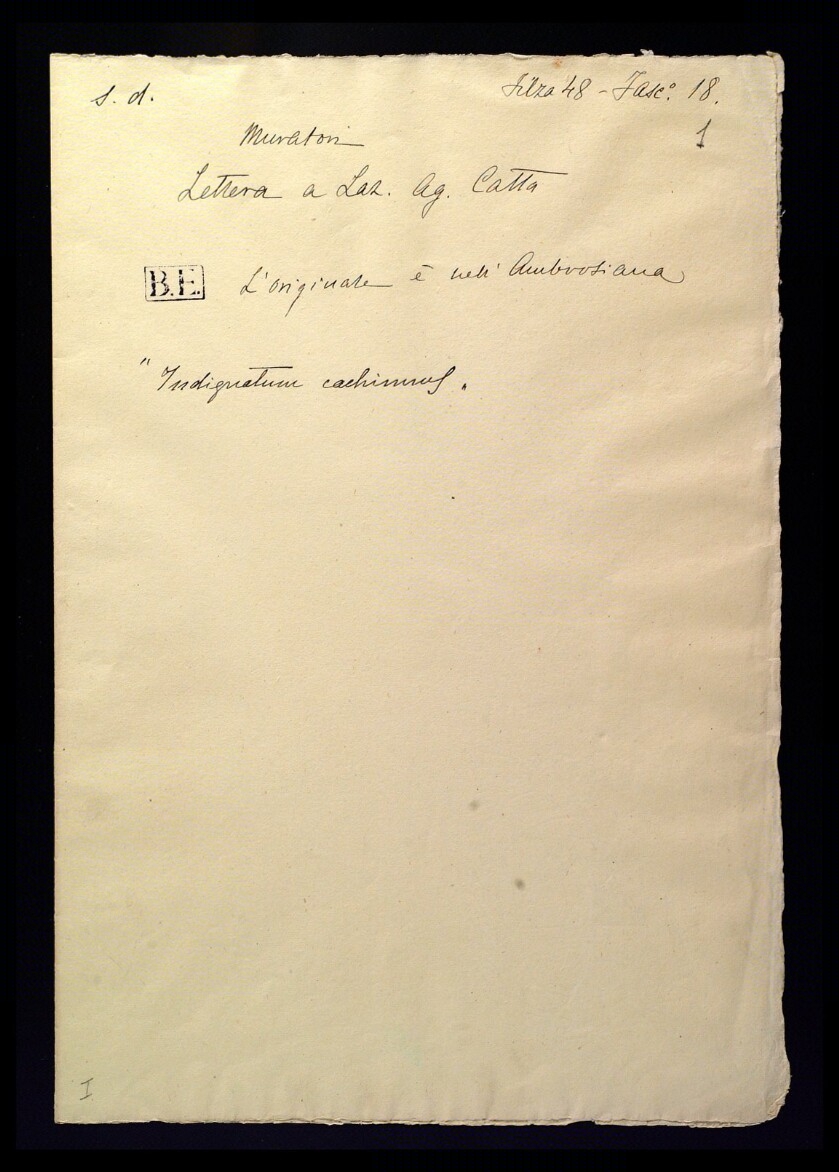 s. d.
Filza 48 - Fasc.º 18.
1
Muratori
Lettera a Laz. Ag. Cotta
B.E.
L'originale è nell'Ambrosiana
"Indignatum cachinnus"
I